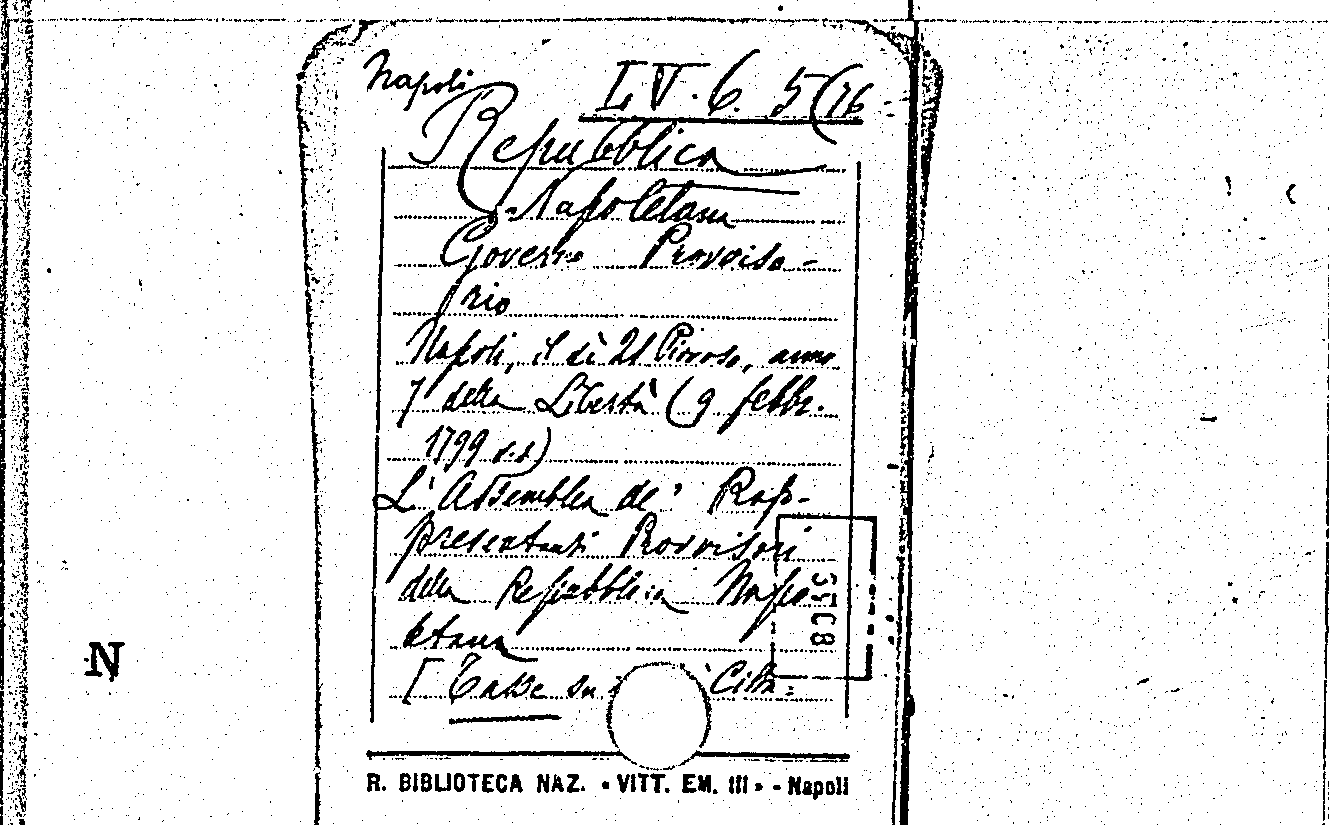 Napoli L.V. 6. 5(76
Repubblica
Napoletana
Governo Provviso-
rio
Napoli, il dì 21 Piovoso, anno
7 della Libertà (9 febbr.
1799 v.s)
L'Assemblea de' Rap-
presentanti Provvisori
della Repubblica Napo
letana
[Tasse su Citta-
R. BIBLIOTECA NAZ. « VITT. EM. III » - Napoli
N